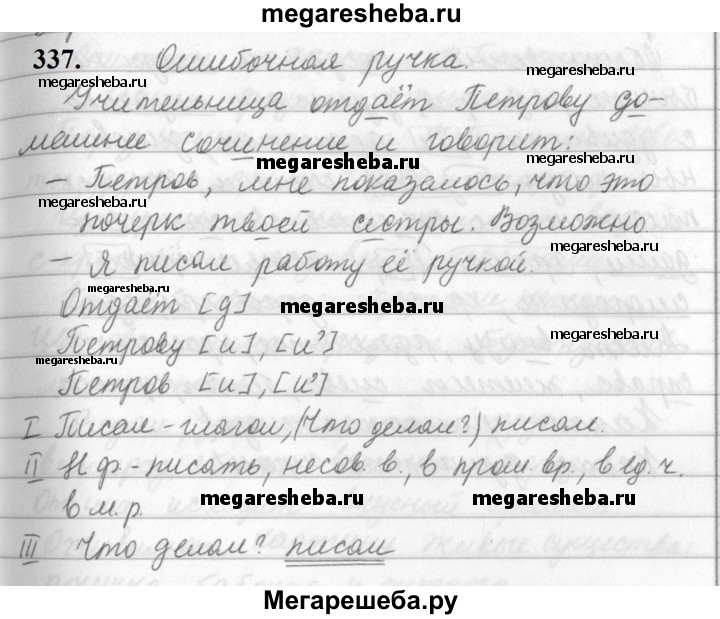 megaresheba.ru
337. Ошибочная ручка.
megaresheba.ru
megaresheba.ru
Учительница отдаёт Петрову до-
машнее сочинение и говорит:
megaresheba.ru
megaresheba.ru
– Петров, мне показалось, что это
megaresheba.ru
почерк твоей сестры. Возможно.
megaresheba.ru
– Я писал работу её ручкой.
Отдаёт [д]
megaresheba.ru
megaresheba.ru
Петрову [и], [иэ]
megaresheba.ru
Петров [и], [иэ]
I Писал – глагол, (Что делал?) писал.
II Н.ф. – писать, несов. в., в прош. вр., в ед. ч.
megaresheba.ru
megaresheba.ru
в м. р.
III Что делал? писал
Мегарешеба.ру